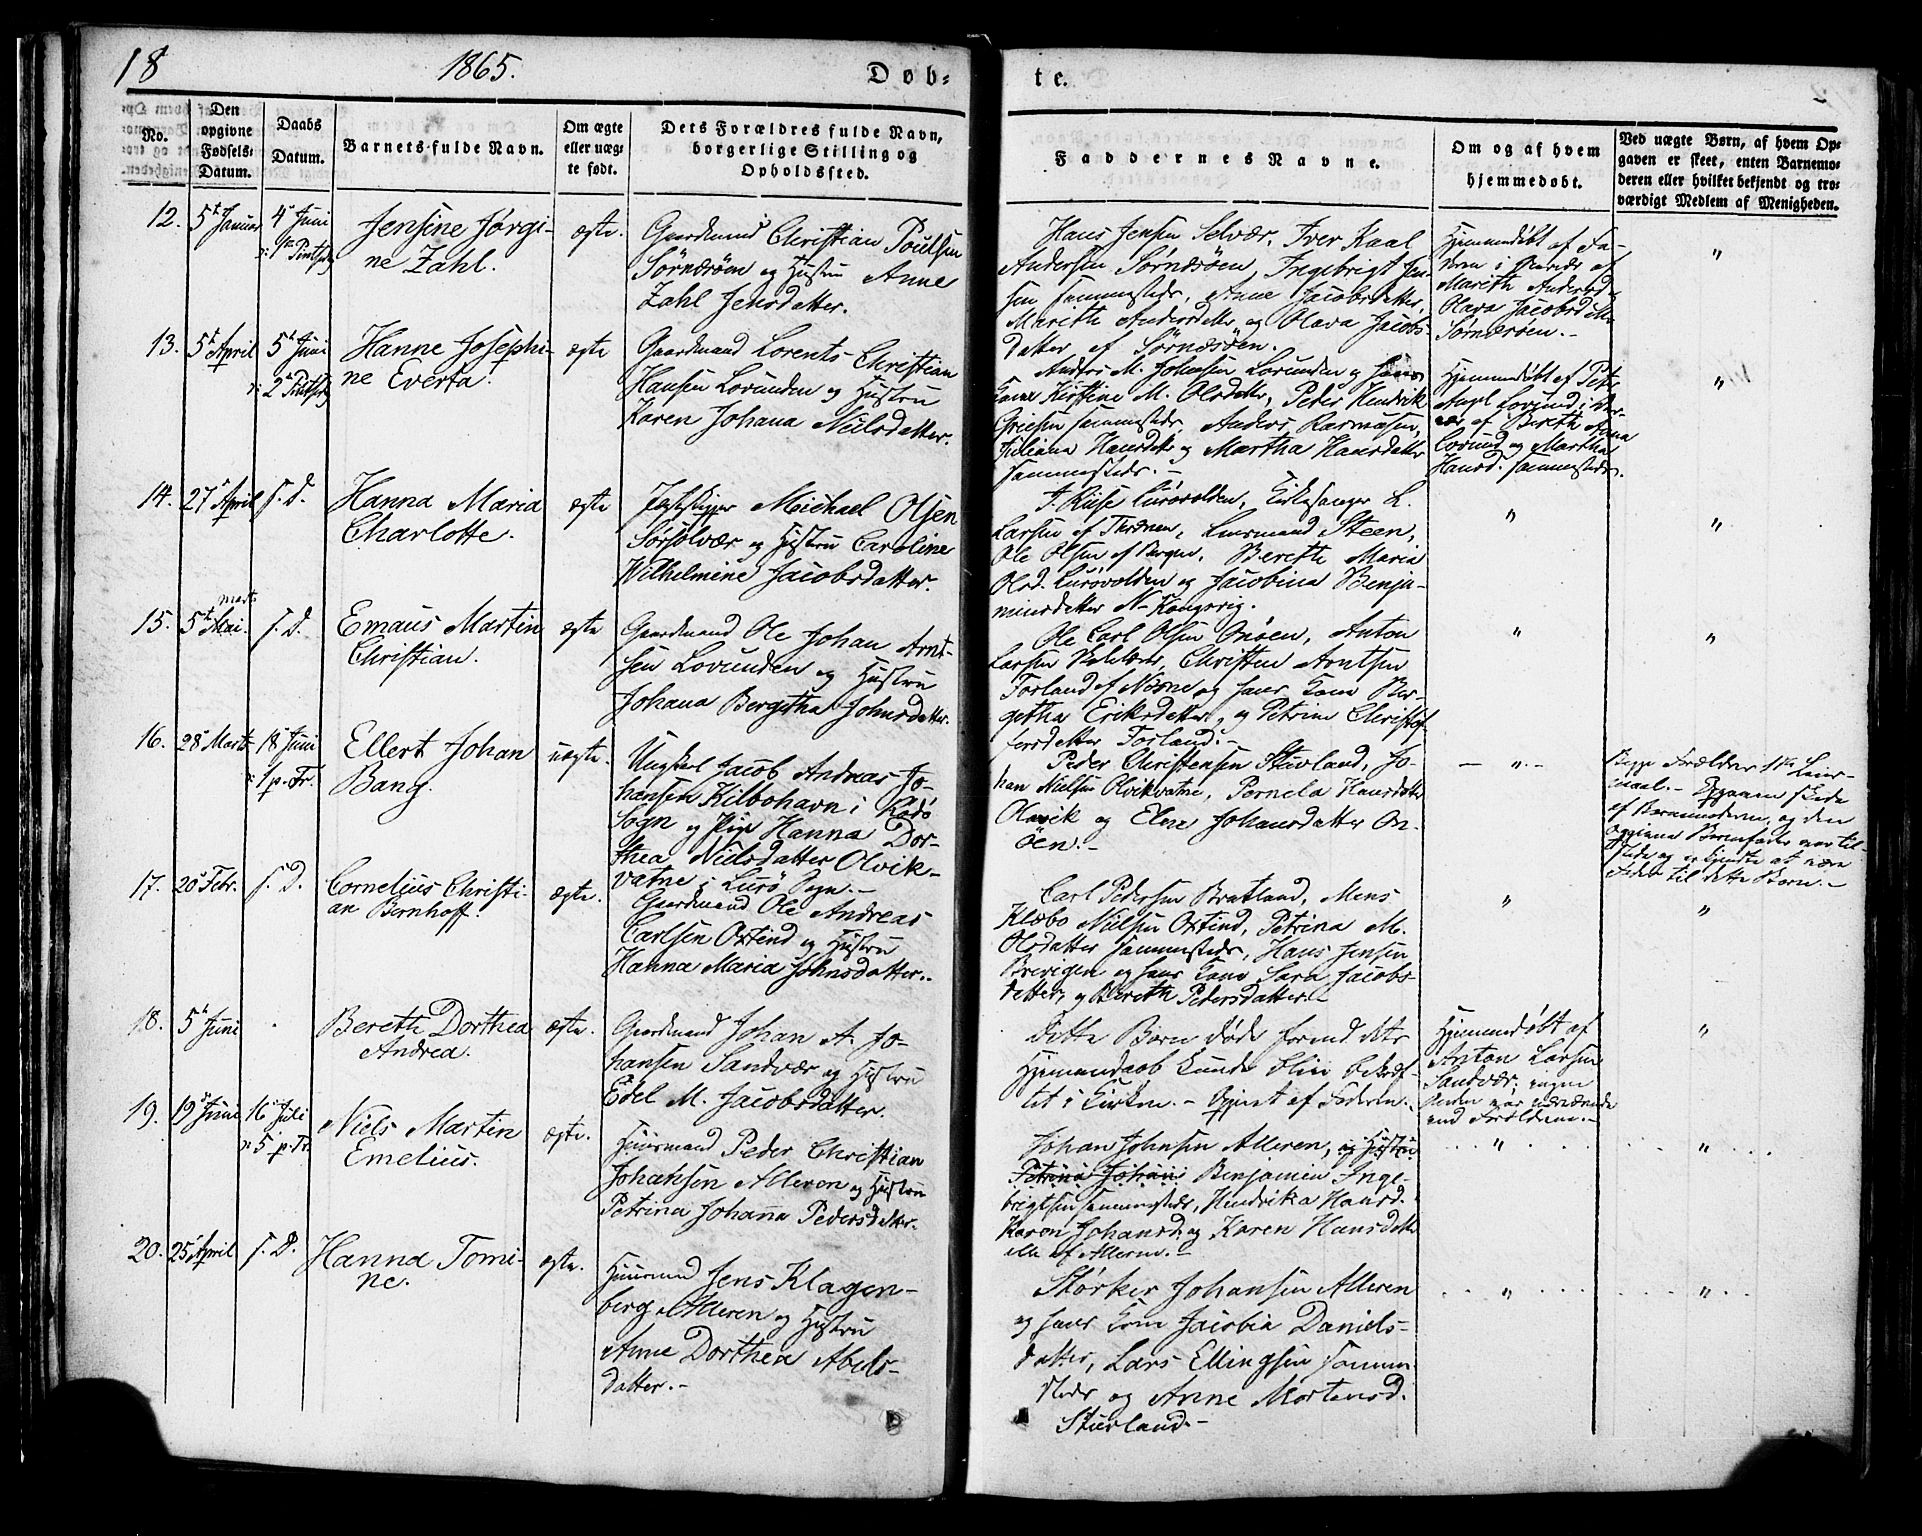 18
1865.
Døb-
te.
No.
Den opgivne Fødsels-Datum.
Daabs Datum.
Barnets fulde Navn.
Om ægte eller uægte født.
Dets Forældres fulde Navn, borgerlige Stilling og Opholdssted.
Faddernes Navne.
Om og af hvem hjemmedøbt.
Ved uægte Børn, af hvem Opgaven er skeet, enten Barnemoderen eller hvilket bekjendt og troværdigt Medlem af Menigheden.
12.
5t Januar
4d Juni
1ste Pintsedg
Jensine Jørgi-
ne Zahl.
ægte.
Gaardmand Christian Poulsen
Sørnæsøen og Hustru Anne
Zahl Jensdatter.
Hans Jensen Selvær, Iver Kaal
Andersen Sørnæsøen, Ingebrigt Jen-
sen sammesteds, Anne Jacobsdatter,
Marith Andersdatter og Olava Jacobs-
datter af Sørnæsøen.
Hjemmedøbt af Fa-
deren i Nærvær af
Marith Andersd.
Olava Jacobsdatter
Sørnæsøen.-
"
13.
5t April
5d Juni
2d Pintsedg
Hanne Josephi-
ne Everta.
ægte
Gaardmand Lorents Christian
Hansen Lovunden og Hustru
Karen Johana Nielsdatter.
Anders M. Johnsen Lovunden og hans
Kone Kirstine M. Olsdatter, Peder Hendrik
sammesteds, Anders Rasmusen,
Juliana Hansdatter og Martha Hansdatter
sammesteds.-
Hjemmedøbt af Peter
Lovund i Nær-
vær af Berith Anna
Lovund og Martha
Hansd. sammesteds.
"
14.
27d April
s. D.
Hanna Maria
Charlotte.
ægte
Jagtskipper Meichael Olsen
Sørsolvær og Hustru Caroline
Wilhelmine Jacobsdatter.
Lurøvolden, Kirkesanger L.
Larsen af Thrænen, Lensmand Steen,
Ole Olsen af Bergen, Bereth Maria
Olsd. Lurøvolden og Jacobina Benja-
minsdatter N-Kongsvig.
"
"
15.
marts
5t Mai.
s. D.
Emaus Martin
Christian.
ægte
Gaardmand Ole Johan Arnt-
sen Lovunden og Hustru
Johana Bergitha Johnsdatter.
Ole Carl Olsen Onøen, Anton
Larsen Christen Arntsen
Forland af Næsne og hans Kone Ber-
getha Eriksdatter, og Petrine Christof-
fersdatter Forland.-
"
"
16.
28d Marts
18d Juni
1 p. Tr.
Ellert Johan
Bang.
uægte.
Ungkarl Jacob Andreas Jo-
hansen Kilbohavn i Rødø
Sogn og Pige Hanna Dor-
thea Nielsdatter Olvik-
vatne i Lurø Sogn.-
Peder Christensen Stuvland, Jo-
han Nielsen Olvikvatne, Pernela Hansdatter
Olsvik og Elen Johansdatter On-
øen.-
- " -
Begge Forældres 1ste Leier-
maal.- Opgaven skede
af Barnemoderen, og den
opgivne Barnefader var til-
stede og erkjendte at være
Fader til dette Barn.-
17.
20d Febr.
s. D.
Cornelius Christi-
an Bernhoff.
ægte.
Gaardmand Ole Andreas
Carlsen Oxtind og Hustru
Hanna Maria Johnsdatter.
Carl Pedersen Bratland, Mens
Klæbo Nielsen Oxtind, Petrina M.
Olsdatter sammesteds, Hans Jensen
Brevigen og hans Kone Sara Jacobs-
datter, og Bereth Pedersdatter.-
"
"
18.
5d Juni
.
Bereth Dorthea
Andrea.
ægte.
Gaardmand Johan A. Jo-
hansen Sandvær og Hustru
Edel M. Jacobsdatter.
Dette Barn døde forend dets
Hjemmedaab kunde blive bekræf-
tet i Kirken.- Opgivet af Faderen.
Hjemmedøbt af
Anton Larsen
Sandvær; ingen
anden var nærværende
end Forældrene.-
"
19.
19d Juni
16d Juli
5 p. Tr.
Niels Martin
Emelius.
ægte.
Huusmand Peder Christian
Johansen Alleren og Hustru
Petrina Johanna Pedersdatter.
Johan Johnsen Alleren, og Hustru
Petrina Johan Benjamin Inge-
brigtsen sammesteds, Hendrika Hansd.
Karen Johansd. og Karen Hansdatter
alle af Alleren.-
"
"
20.
25d April
s. D.
Hanna Tomi-
ne.
ægte.
Huusmand Jens Klagen-
berg Alleren og Hustru
Anne Dorthea Abels-
datter.-
Størker Johansen Alleren
og hans Kone Jacobia Daniels-
datter, Lars Ellingsen samme-
steds og Anne Mortensd.
Stuvland.-
"
"